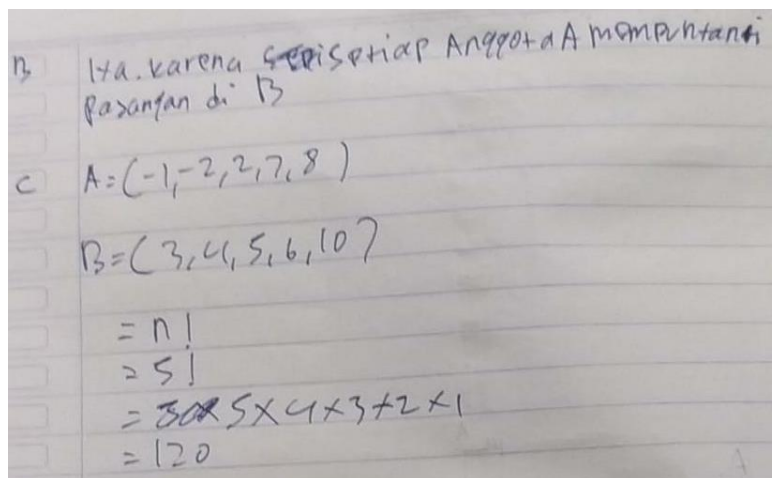 B Iya. karena setiap Anggota A mempunyai
Pasangan di B
C A = (-1, -2, 2, 7, 8)
B = (3, 4, 5, 6, 10)
= n!
= 5!
= 5×4×3×2×1
= 120